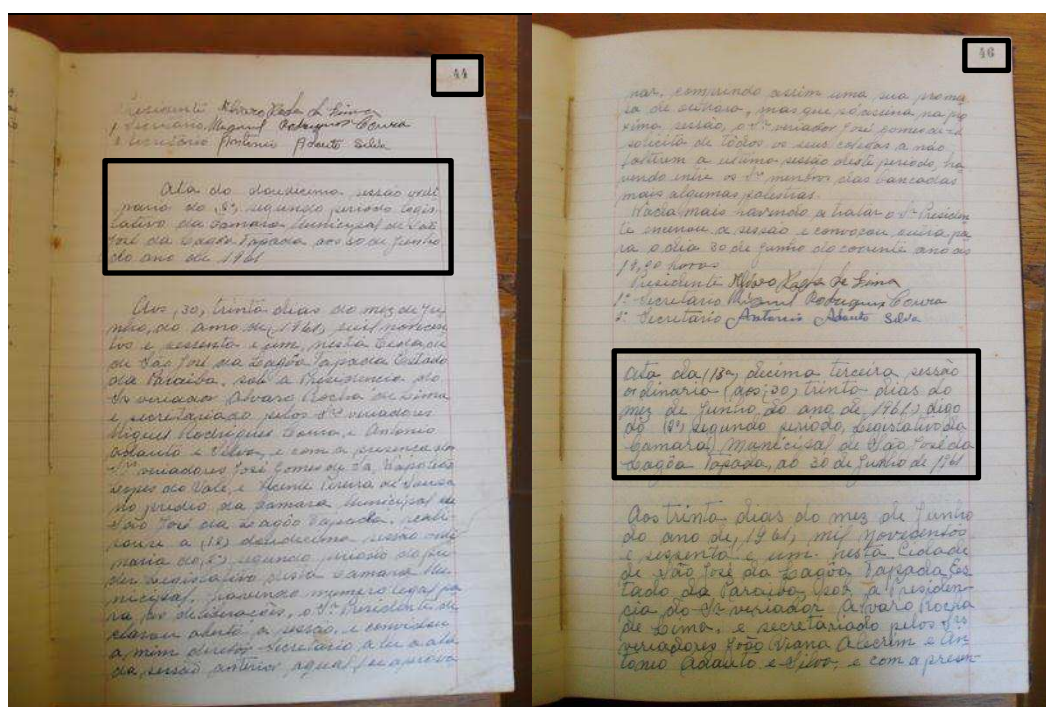 44
Presidente Alvaro Rocha de Lima
1º Secretario Miguel Rodrigues Coura
2º Secretario Antonio Adauto Silva
Ata da douzecima sessão ordi
naria do (2º) segundo periodo legis
lativo da Camara Municipal de São
José da Lagôa Tapada aos 30 de junho
do ano de 1961
Aos, 30, trinta dias do mez de Ju
nho, do ano de, 1961, mil novecen
tos e sessenta e um, nesta Cidade
de São José da Lagôa Tapada Estado
da Paraiba, sob a Presidencia do
Sr veriador Alvaro Rocha de Lima
e secretariado pelos Srs veriadores
Miguel Rodrigues Coura, e Antonio
Adauto e Silva, e com a presença dos
Srs veriadores José Gomes de Sá, Napoleão
Lopes do Vale, e Vicente Pereira de Sousa
no predio da Camara Municipal de
São José da Lagôa Tapada, reali
souse a (12) douzecima sessão ordi
naria do, 2º, segundo periodo do po
der Legislativo desta Camara Mu
nicipal, havendo numero legal pa
ra, as deliberações, o Sr Presidente de
clarou aberta a sessão, e convidou
a mim diretor Secretario, a ler a ata
da sessão anterior a qual foi aprova
46
nar, comprindo assim uma sua prome
sa de outrora, mas que só assina na pro
xima sessão, o Sr veriador José Gomes de Sá
solicita de todos os seus colegas a não
faltarem a ultima sessão deste periodo, ha
vendo entre os Srs membros das bancadas
mais algumas palestras.
Nada mais havendo a tratar o Sr Presiden
te encerrou a sessão e convocou outra pa
ra o dia 30 de junho do corrente ano as
horas
Presidente Alvaro Rocha de Lima
1º Secretario Miguel Rodrigues Coura
2º Secretario Antonio Adauto Silva
Ata da (13ª) decima terceira, sessão
ordinaria (aos, 30) trinta dias do
mez de Junho, do ano de, 1961, digo
do (2º) segundo periodo, Legislativo da
Camara) Municipal de São José da
Lagôa Tapada, ao 30 de Junho de 1961
Aos trinta dias do mez de Junho
do ano de, 1961, mil novecentos
e sessenta e um. nesta Cidade
de São José da Lagôa Tapada Es
tado da Paraiba, sob a Presiden
cia do Sr veriador Alvaro Rocha
de Lima, e secretariado pelos Srs
veriadores João Viana Alecrim e An
tonio Adauto e Silva, e com a presen